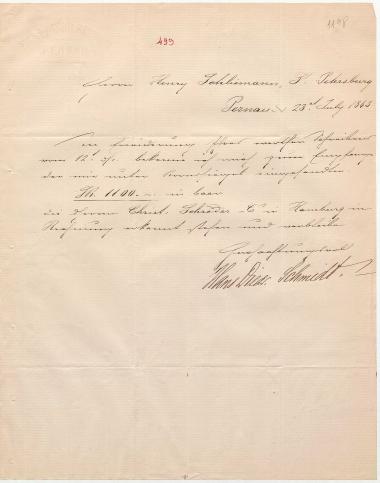 1198
499
Herrn Henry Schliemann, St. Petersburg
Pernau 23d July 1863
In Erwiederung Ihres werthen Schreibens
vom 12. d/. bekenne ich mich zum Empfang
der mir unter Kronssiegel eingesandten
1100 in baar
die Herren Christ. Schröder & Co in Hamburg in
Rechnung erkannt stehen und verbleibe
Hochachtungsvoll
Hans Died. Schmidt.